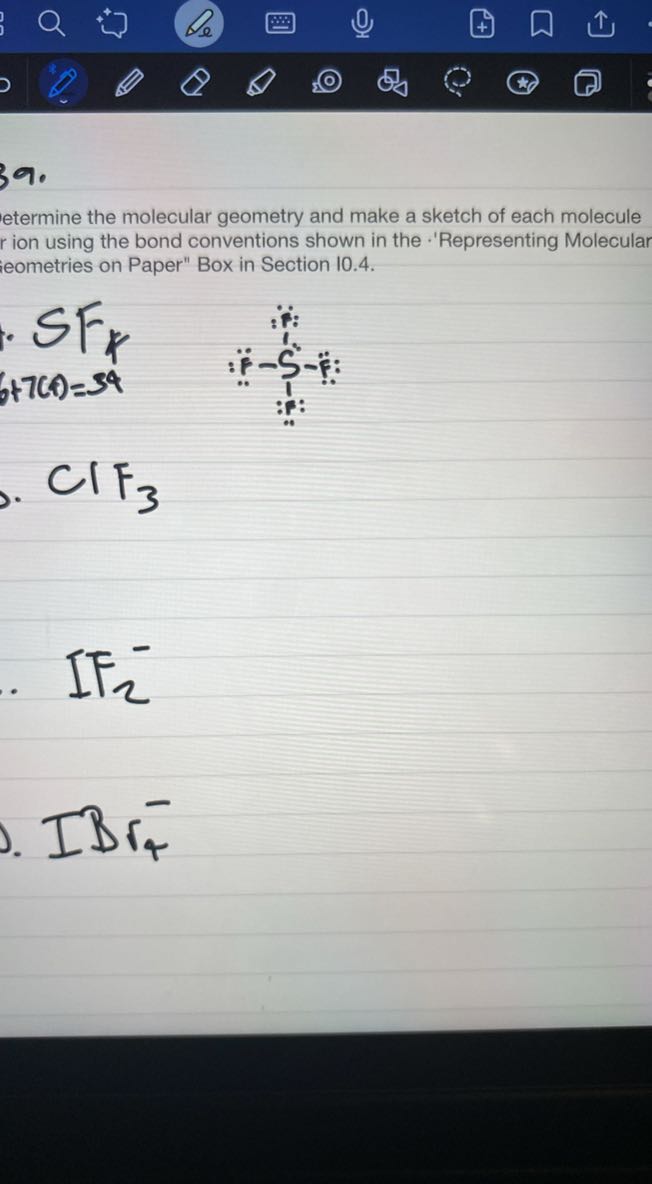 39.
Determine the molecular geometry and make a sketch of each molecule
r ion using the bond conventions shown in the ·'Representing Molecular
Geometries on Paper" Box in Section I0.4.
. SF4
6+7(4)=34
:F:
:F-S-F:
:F:
. ClF3
. IF2-
D. IBr4-